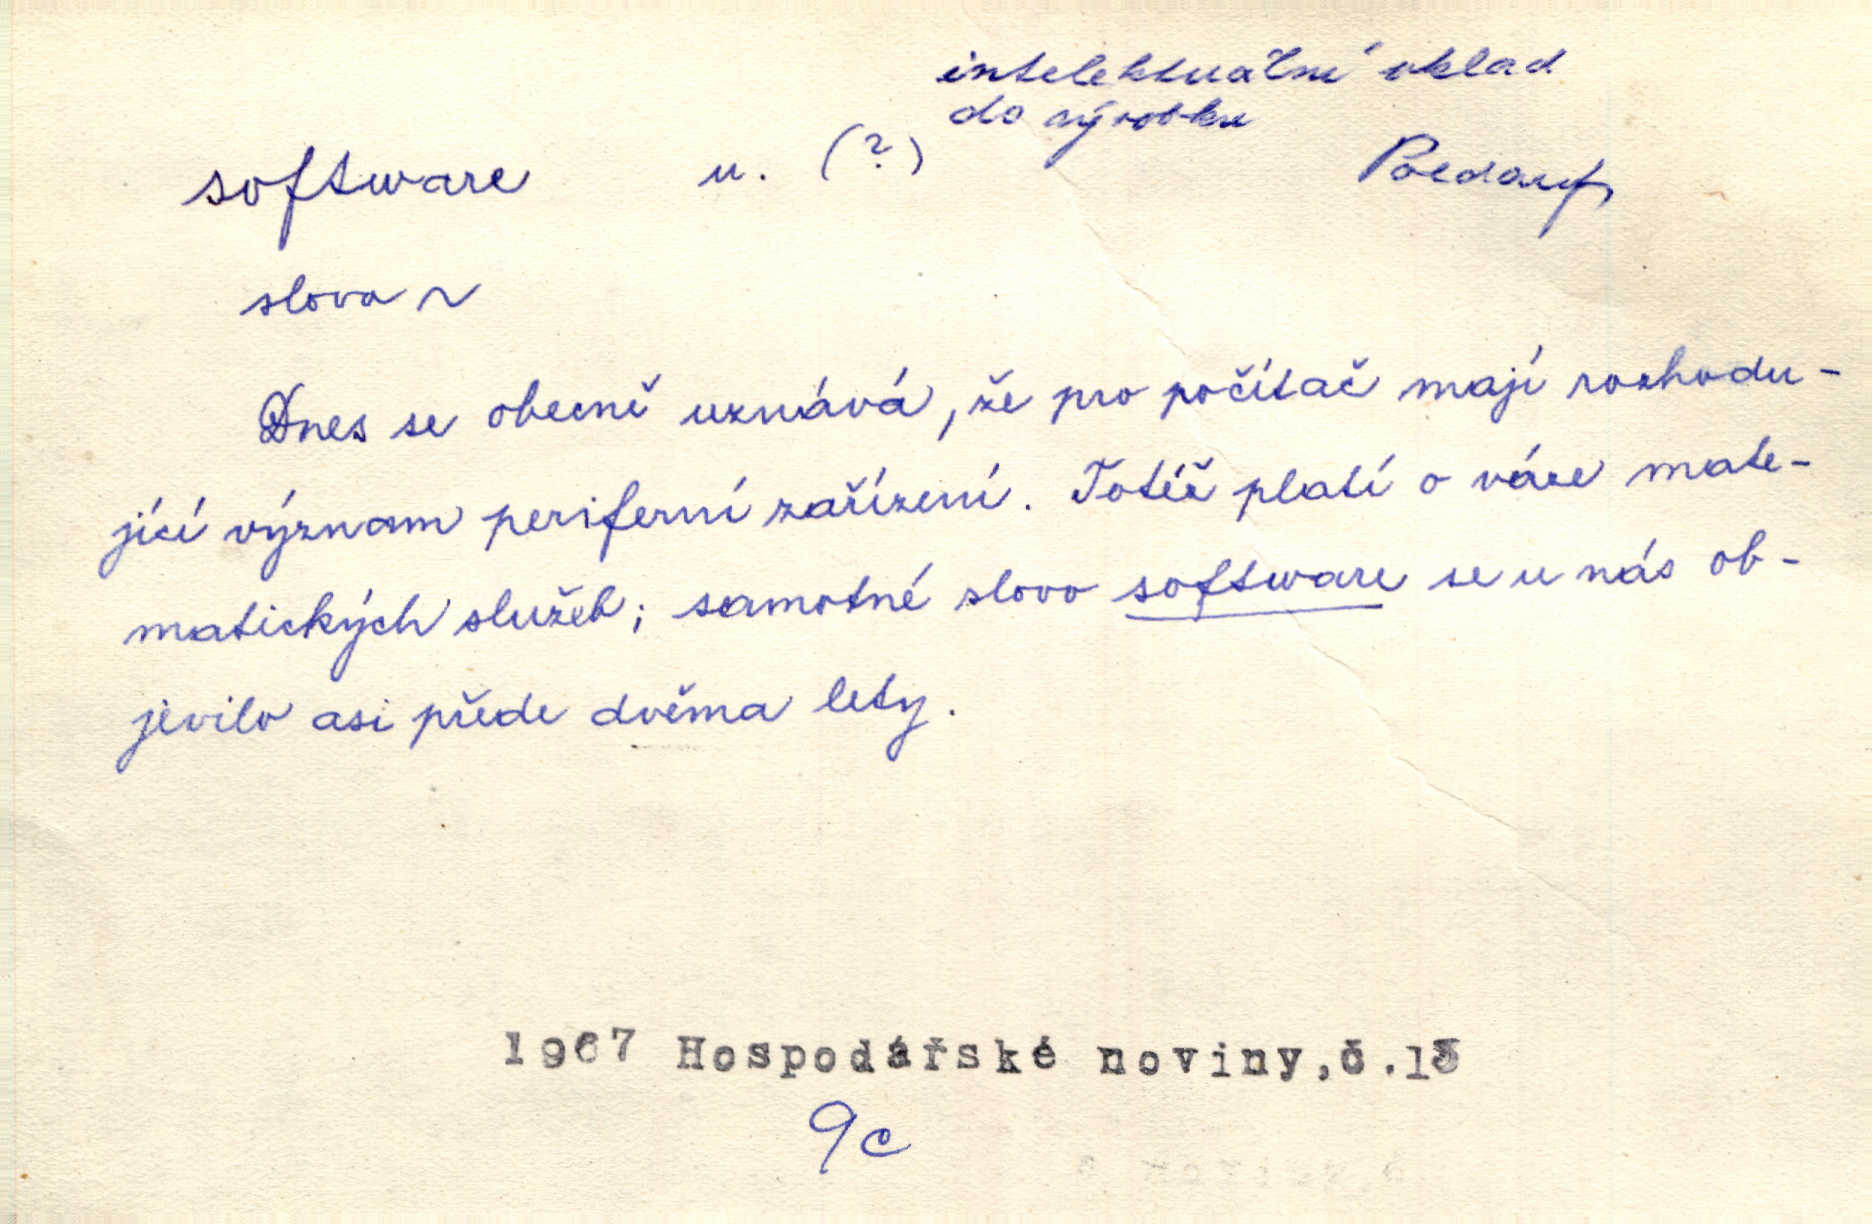 intelektuální vklad
do výrobku
software n. (?)
slovo ~
Dnes se obecně uznává, že pro počítač mají rozhodu-
jící význam periferní zařízení. Totéž platí o váze mate-
matických služeb; samotné slovo software se u nás ob-
jevilo asi přede dvěma lety.
1967 Hospodářské noviny, č.
9c